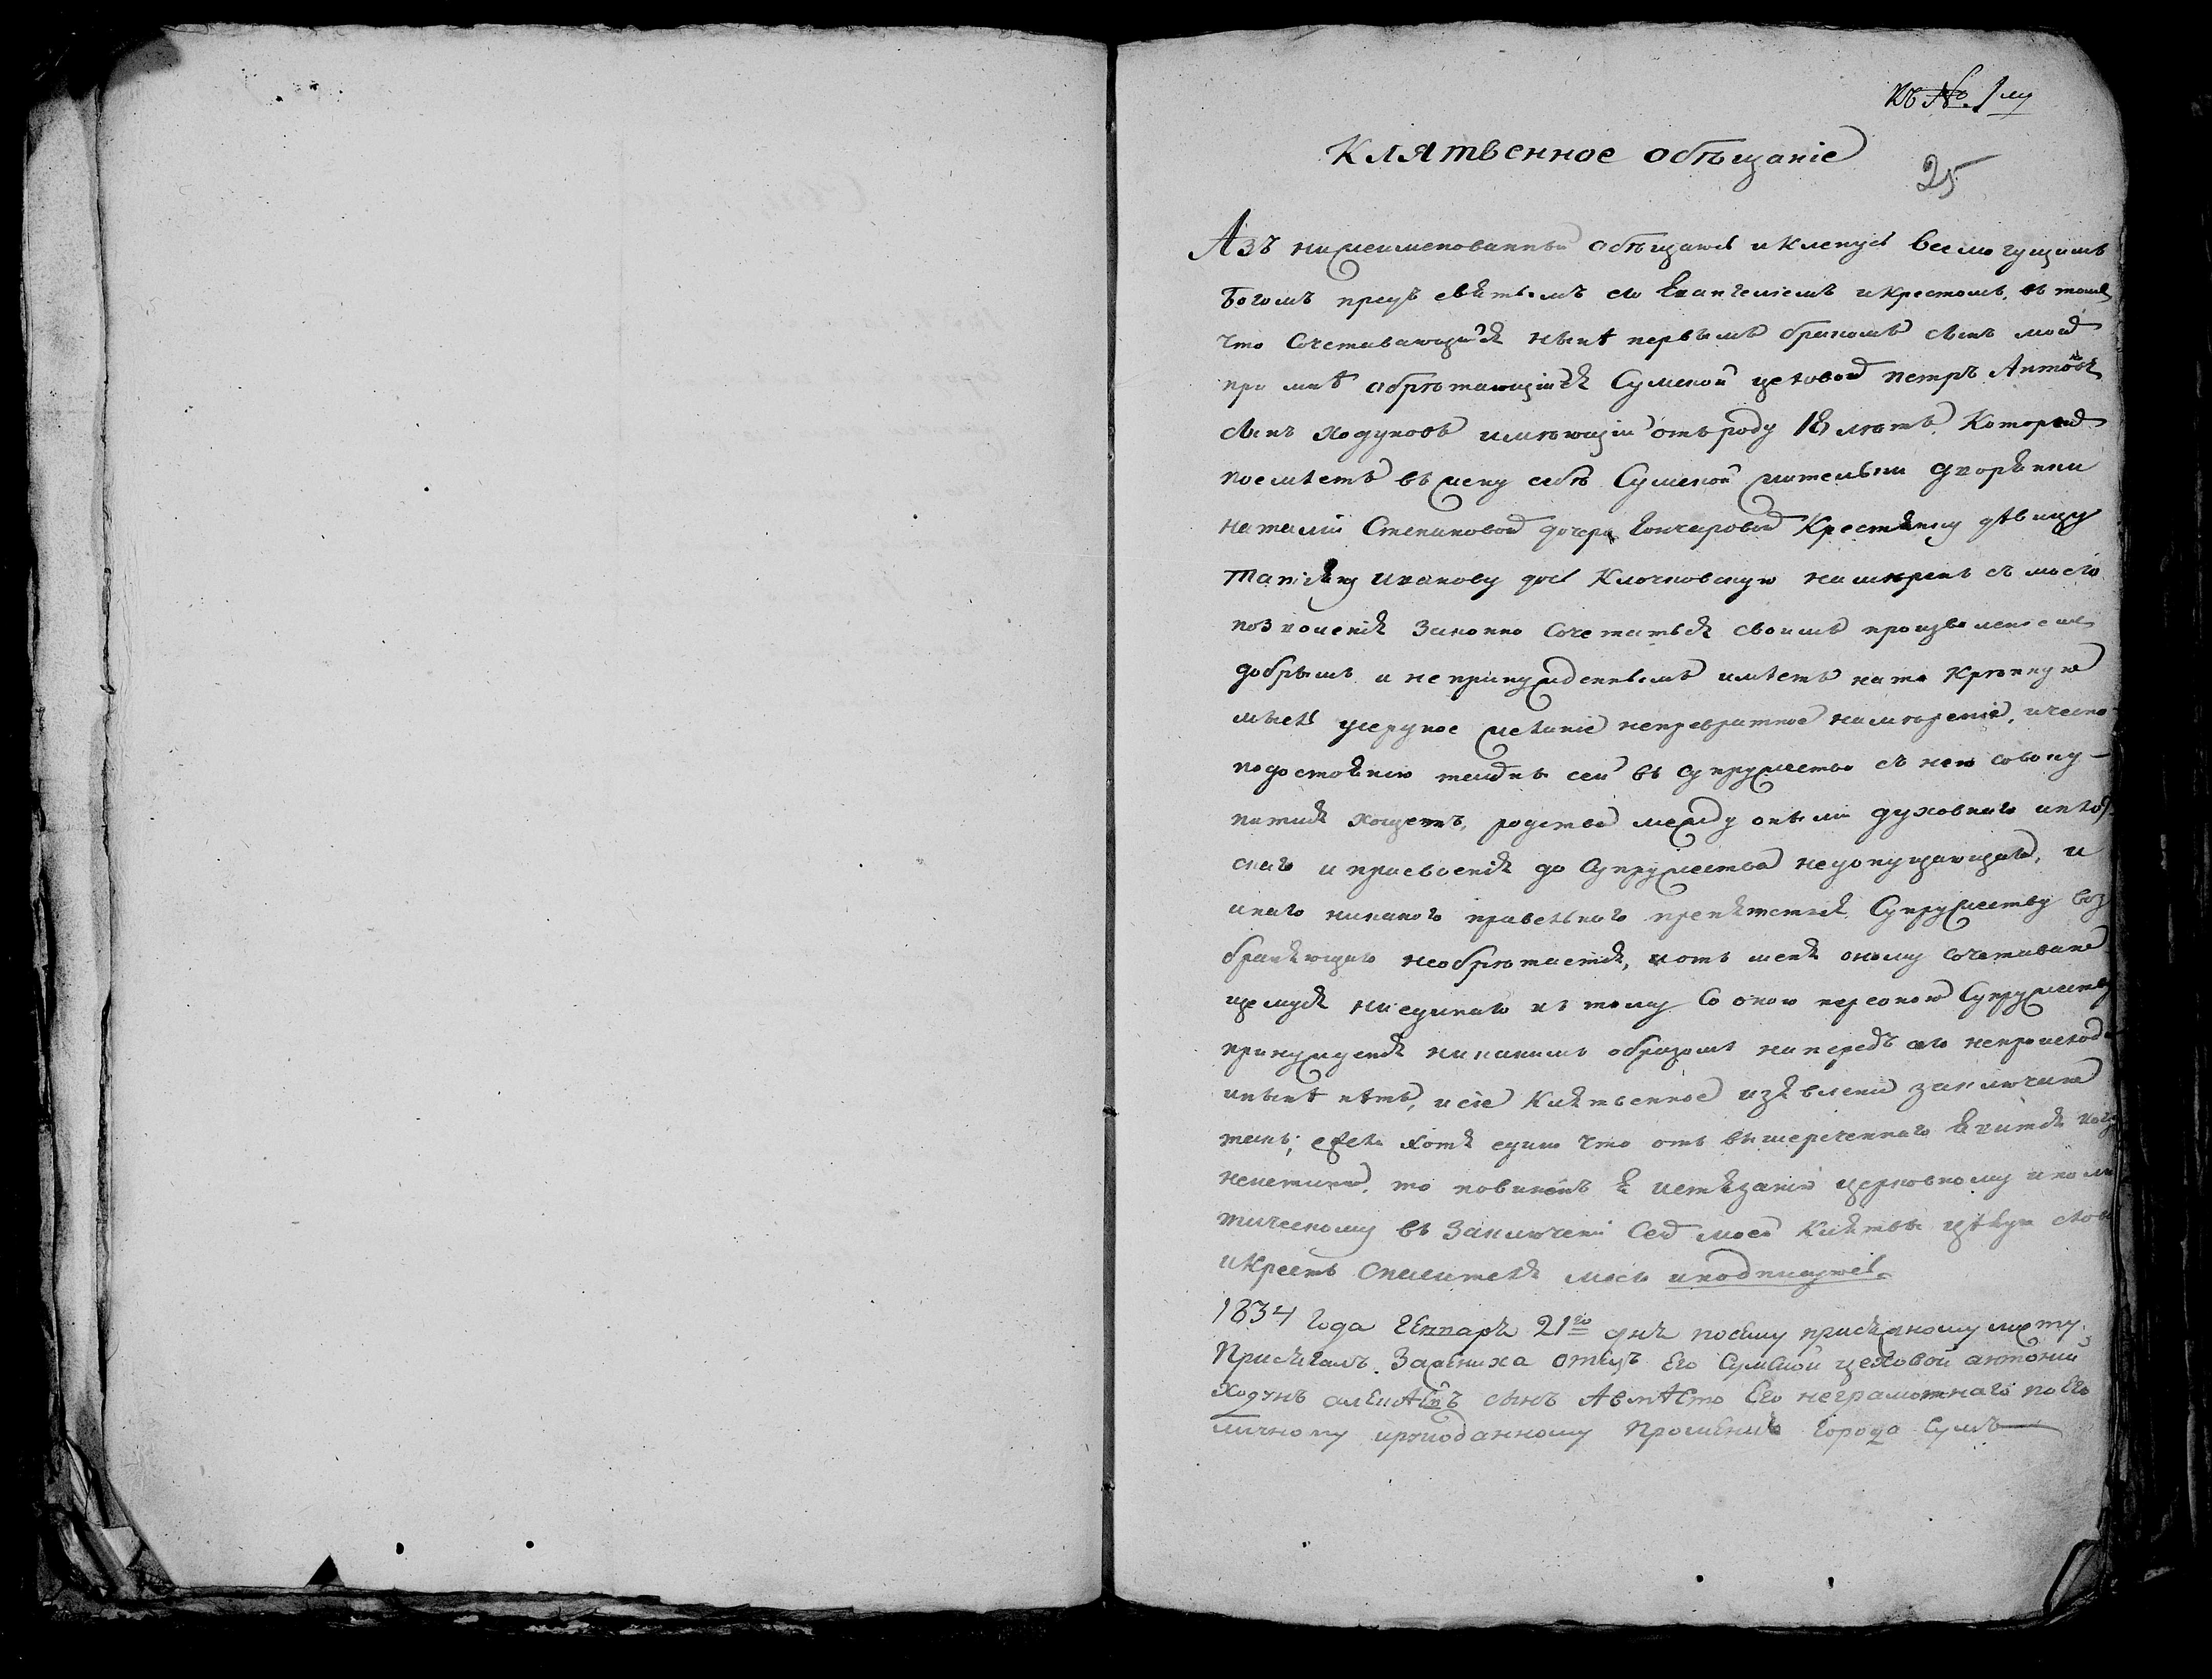 къ № 1му
Клятвенное обѣщаніе
25
Азъ нижеименованный обѣщаюсь и кленусь всемогущимъ
Богомъ предъ святымъ его Евангеліемъ и крестомъ, въ томъ
что сочетавающійся нынѣ первымъ бракомъ сынъ мой
при мнѣ обрѣтающійся Сумской цеховой Петръ Антоновъ
сынъ Ходуновъ имѣющій отъ роду 18 лѣтъ, которой
поемлетъ въ жену себѣ Сумской жительки дворянки
Наталіи Степановой дочери Гончаровой крестьянку дѣвицу
Иванову дочь Клочковскую намѣренъ съ моего
позволенія законно сочетаться своимъ произволеніемъ
добрымъ и непринужденнымъ имѣетъ на то крѣпкую
мысль усердное желаніе непревратное намѣреніе, и честно
по достоянію въ супружество съ нею совоку-
питися хощетъ, родства между оными духовнаго и плот
скаго и присвоенія до супружества недопущающаго, и
инаго никакого правельнаго препятствія супружеству воз
браняющаго необрѣтается, и отъ меня оному сочетаваю
щемуся ни единаго къ тому со оною персоною супружеству
принужденія никакимъ образомъ напередъ сего непроисход
и нынѣ нѣтъ, и сіе клятвенное изявленіе заключаю
тѣмъ; ежели хотя едино что отъ вышереченнаго явится
неистинно, то повиненъ я истязанію церковному и поли
тическому въ заключеніи сей моей клятвы цѣлую слова
и крестъ Спасителя моего и подписуюсь.
1834 Года Генваря 21го дня по сему присяжному листу
Присягалъ за жениха отецъ его Сумской цеховой Антоний
Ходунъ сынъ а вмѣсто его неграмотнаго по его
личному прошенію города Сумъ